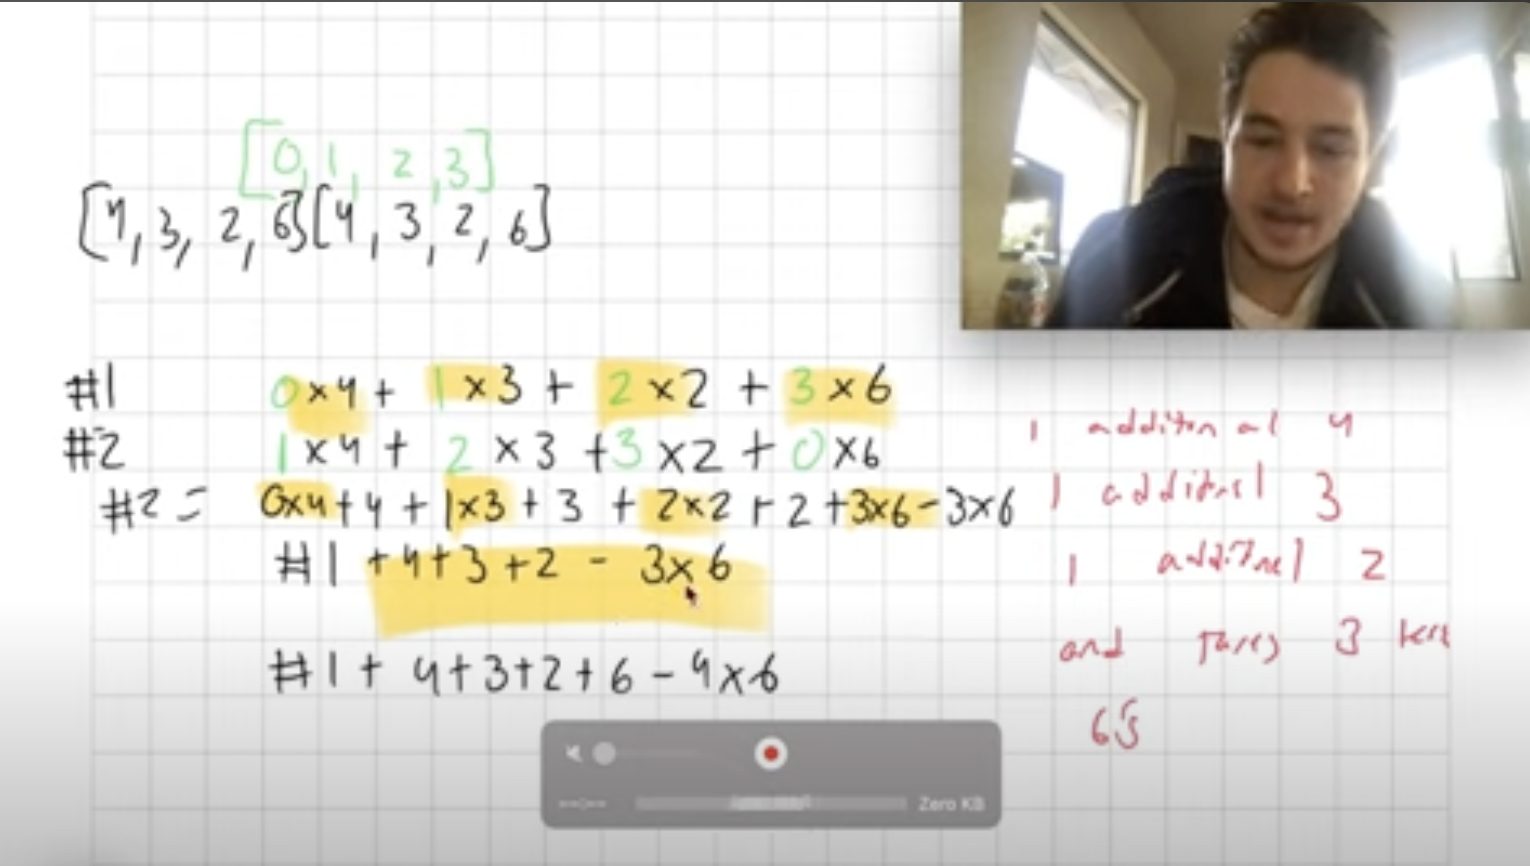 [0, 1, 2, 3]
[4, 3, 2, 6][4, 3, 2, 6]
#1 0×4 + 1×3 + 2×2 + 3×6
#2 1×4 + 2×3 + 3×2 + 0×6
#2 = 0×4 + 4 + 1×3 + 3 + 2×2 + 2 + 3×6 - 3×6
#1 + 4 + 3 + 2 - 3×6
#1 + 4 + 3 + 2 + 6 - 4×6
1 additonal 4
1 additnel 3
1 additnel 2
and 3
6s
--:--
Zero KB